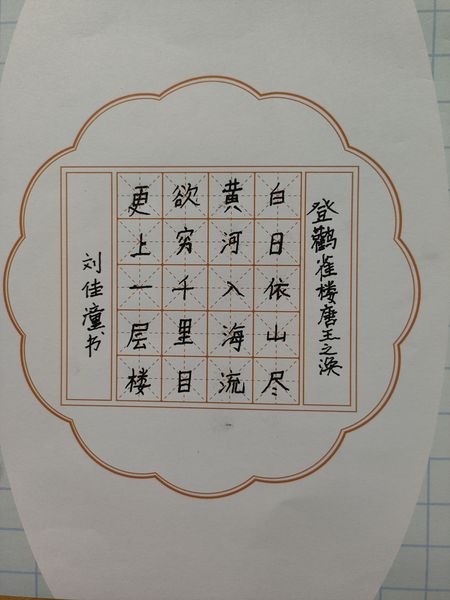 登鹳雀楼唐王之涣
白日依山尽
黄河入海流
欲穷千里目
更上一层楼
刘佳潼书